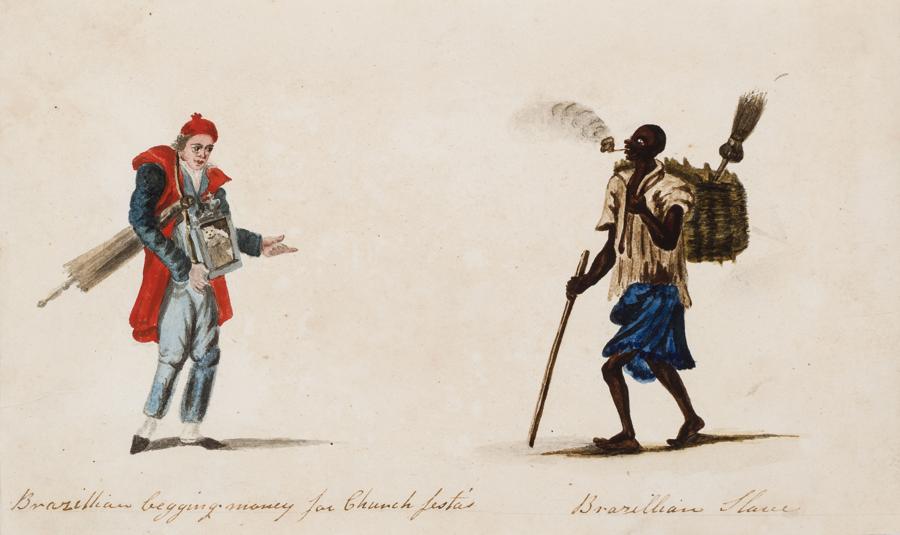 Brazillian begging money for Church festa's
Brazillian Slave